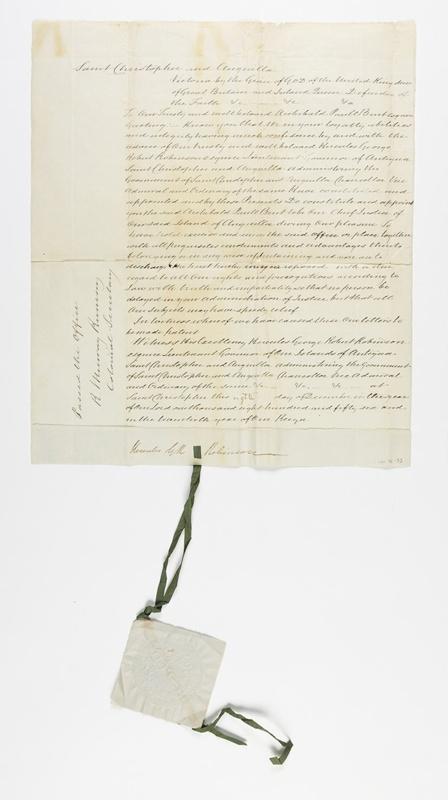 Saint Christopher and Anguilla
Victoria by the Grace of GOD of the United Kingdom
of Great Britain and Ireland Queen Defender of
the Faith &c &c &c
To Our Trusty and well beloved Archibald Paull Burt Esquire
Greeting. Know you that We in your loyalty abilities
and integrity having much confidence by and with the
advice of Our trusty and well beloved Hercules George
Robert Robinson Esquire Lieutenant Governor of Antigua
Saint Christopher and Anguilla administering the
Government of Saint Christopher and Anguilla Chancellor Vice
Admiral and Ordinary of the same Have constituted and
appointed and by these Presents Do constitute and appoint
you the said Archibald Paull Burt to be Our Chief Justice of
Our said Island of Anguilla during Our pleasure To
have hold exercise and enjoy the said office or place together
with all perquisites emoluments and advantages thereto
belonging or in any wise appertaining and you are to
discharge the trust hereby in you reposed with a due
regard to all Our rights and prerogatives according to
Law with truth and impartiality so that no person be
delayed in your Administration of Justice but that all
Our Subjects may have speedy relief
In testimony whereof we have caused these Our letters to
be made patent
Witness His Excellency Hercules George Robert Robinson
Esquire Lieutenant Governor of Our Islands of Antigua
Saint Christopher and Anguilla administering the Government
of Saint Christopher and Anguilla Chancellor Vice Admiral
and Ordinary of the same &c &c &c at
Saint Christopher this day of December in the year
of Our Lord one thousand eight hundred and fifty six and
in the twentieth year of Our Reign
Hercules G. R. Robinson
Passed the Office
R Murray Rumsey
Colonial Secretary